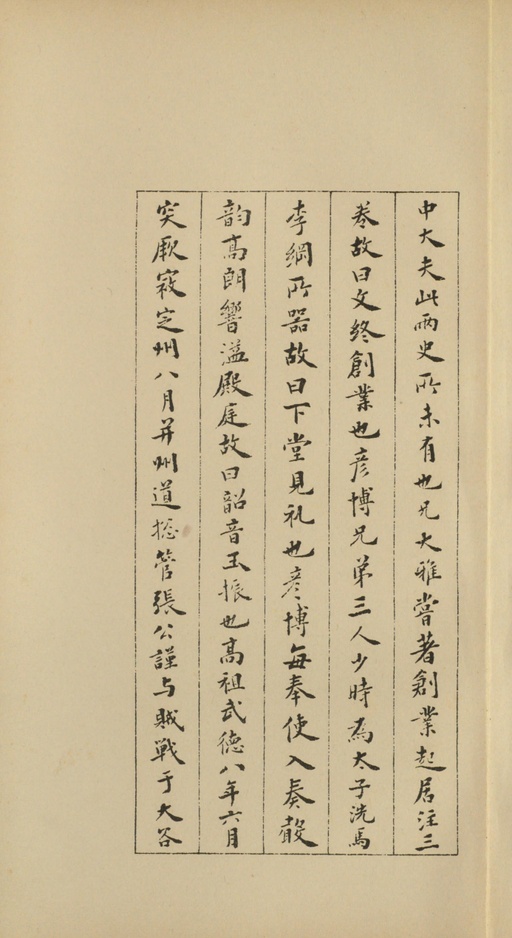 中大夫此兩史所未有也兄大雅嘗著創業起居注三
卷故曰文終創業也彦博兄弟三人少時為太子洗馬
李綱所器故曰下堂見礼也彦博每奉使入奏聲
韵高朗響溢殿庭故曰韶音玉振也高祖武德八年六月
突厥寇定州八月并州道揔管張公謹与賊戰于大谷